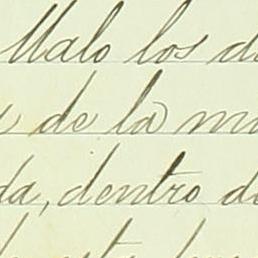 Malo los d
de la m
da, dentro d